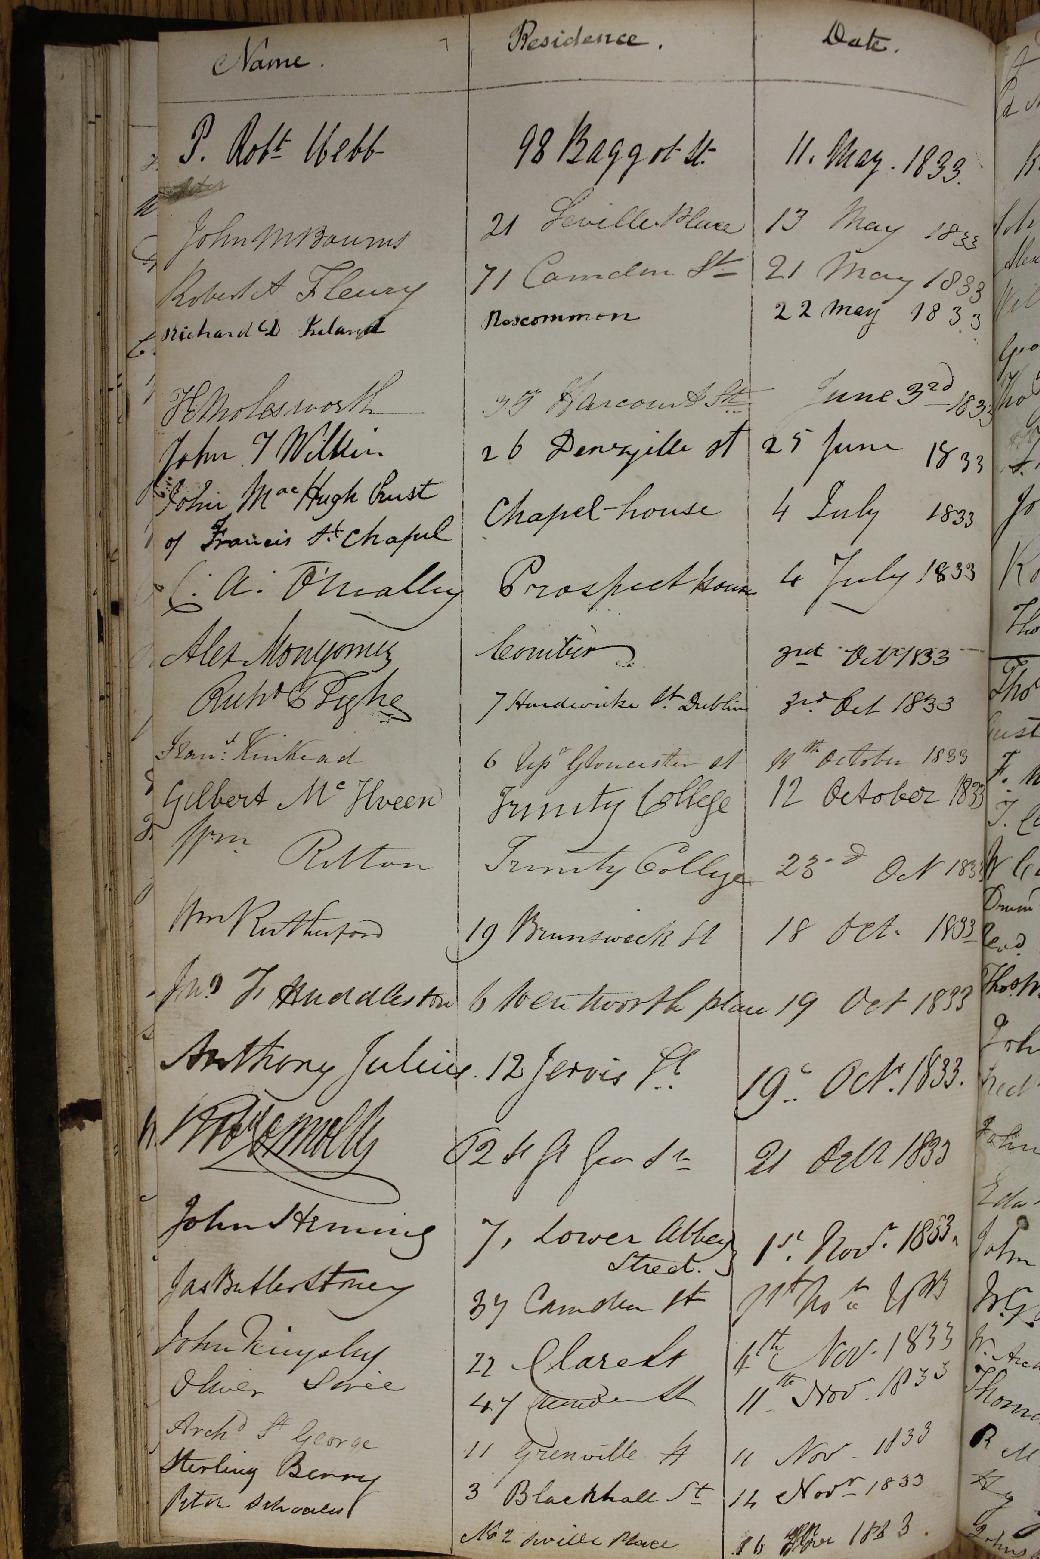 Name. Residence. Date.
P. Robt Webb 98 Baggot St. 11. May. 1833.
John 21 Seville Place 13 May 1833
Robert A Fleury 71 Camden St 21 May 1833
Richard D Ireland Roscommon 22 May 1833
H Molesworth Harcourt St June 3rd 1833
John T Wilkin 26 Denzille st 25 June 1833
John Mac Hugh Priest Chapel-house 4 July 1833
of Francis St. Chapel
C. A. O'Malley Prospect house 4 July 1833
Alex Montgomery 3rd Octr 1833
Richd Tighe 7 Hardwicke St. Dublin 3rd Oct 1833
Frans. Kinkead 6 Upr Gloucester st October 1833
Gilbert Mc Ilveen Trinity College 12 October 1833
Wm Trinity College 23rd Oct 1833
Wm Rutherford 19 Brunswick St 18 Oct. 1833
Jno F. Huddleston 6 Wentworth place 19 Oct 1833
Anthony Julius. 12 Jervis St. 19th Octr. 1833.
21 Octr 1833
John Heming 7, Lower Abbey 1st. Novr. 1833.
Street.
Jas Butler Stoney 37 Camden St
John Kingsley 22 Clare St Nov. 1833
Oliver 47 St 11th Nov. 1833
Archd St George 11 Grenville st 11 Nov. 1833
Sterling Berry 3 Blackhall St 14 Novr 1833
Peter No 2 Seville Place 16